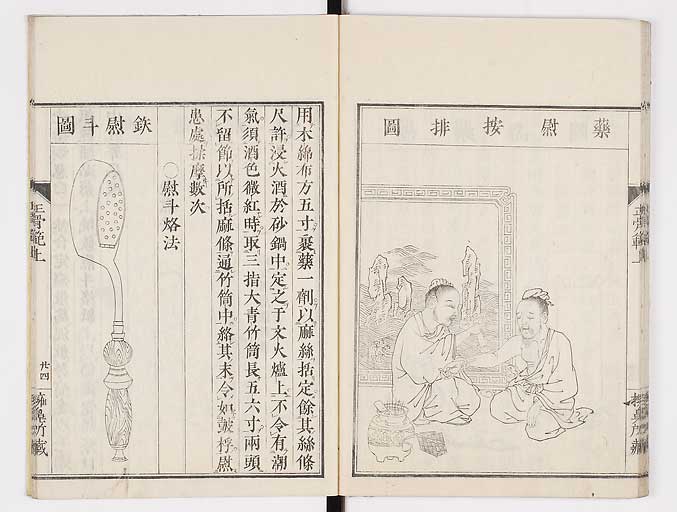 藥熨按排圖
用木綿布方五寸裹藥一劑以麻絲括定餘其絲條
尺許浸火酒於砂鍋中定之于文火爐上不令有潮
氣須酒色微紅時取三指大青竹筒長五六寸兩頭
不留節以所括麻條通竹筒中絡其末令如
患處按摩數次
○熨斗烙法
鈇熨斗圖
正骨範上
廿四